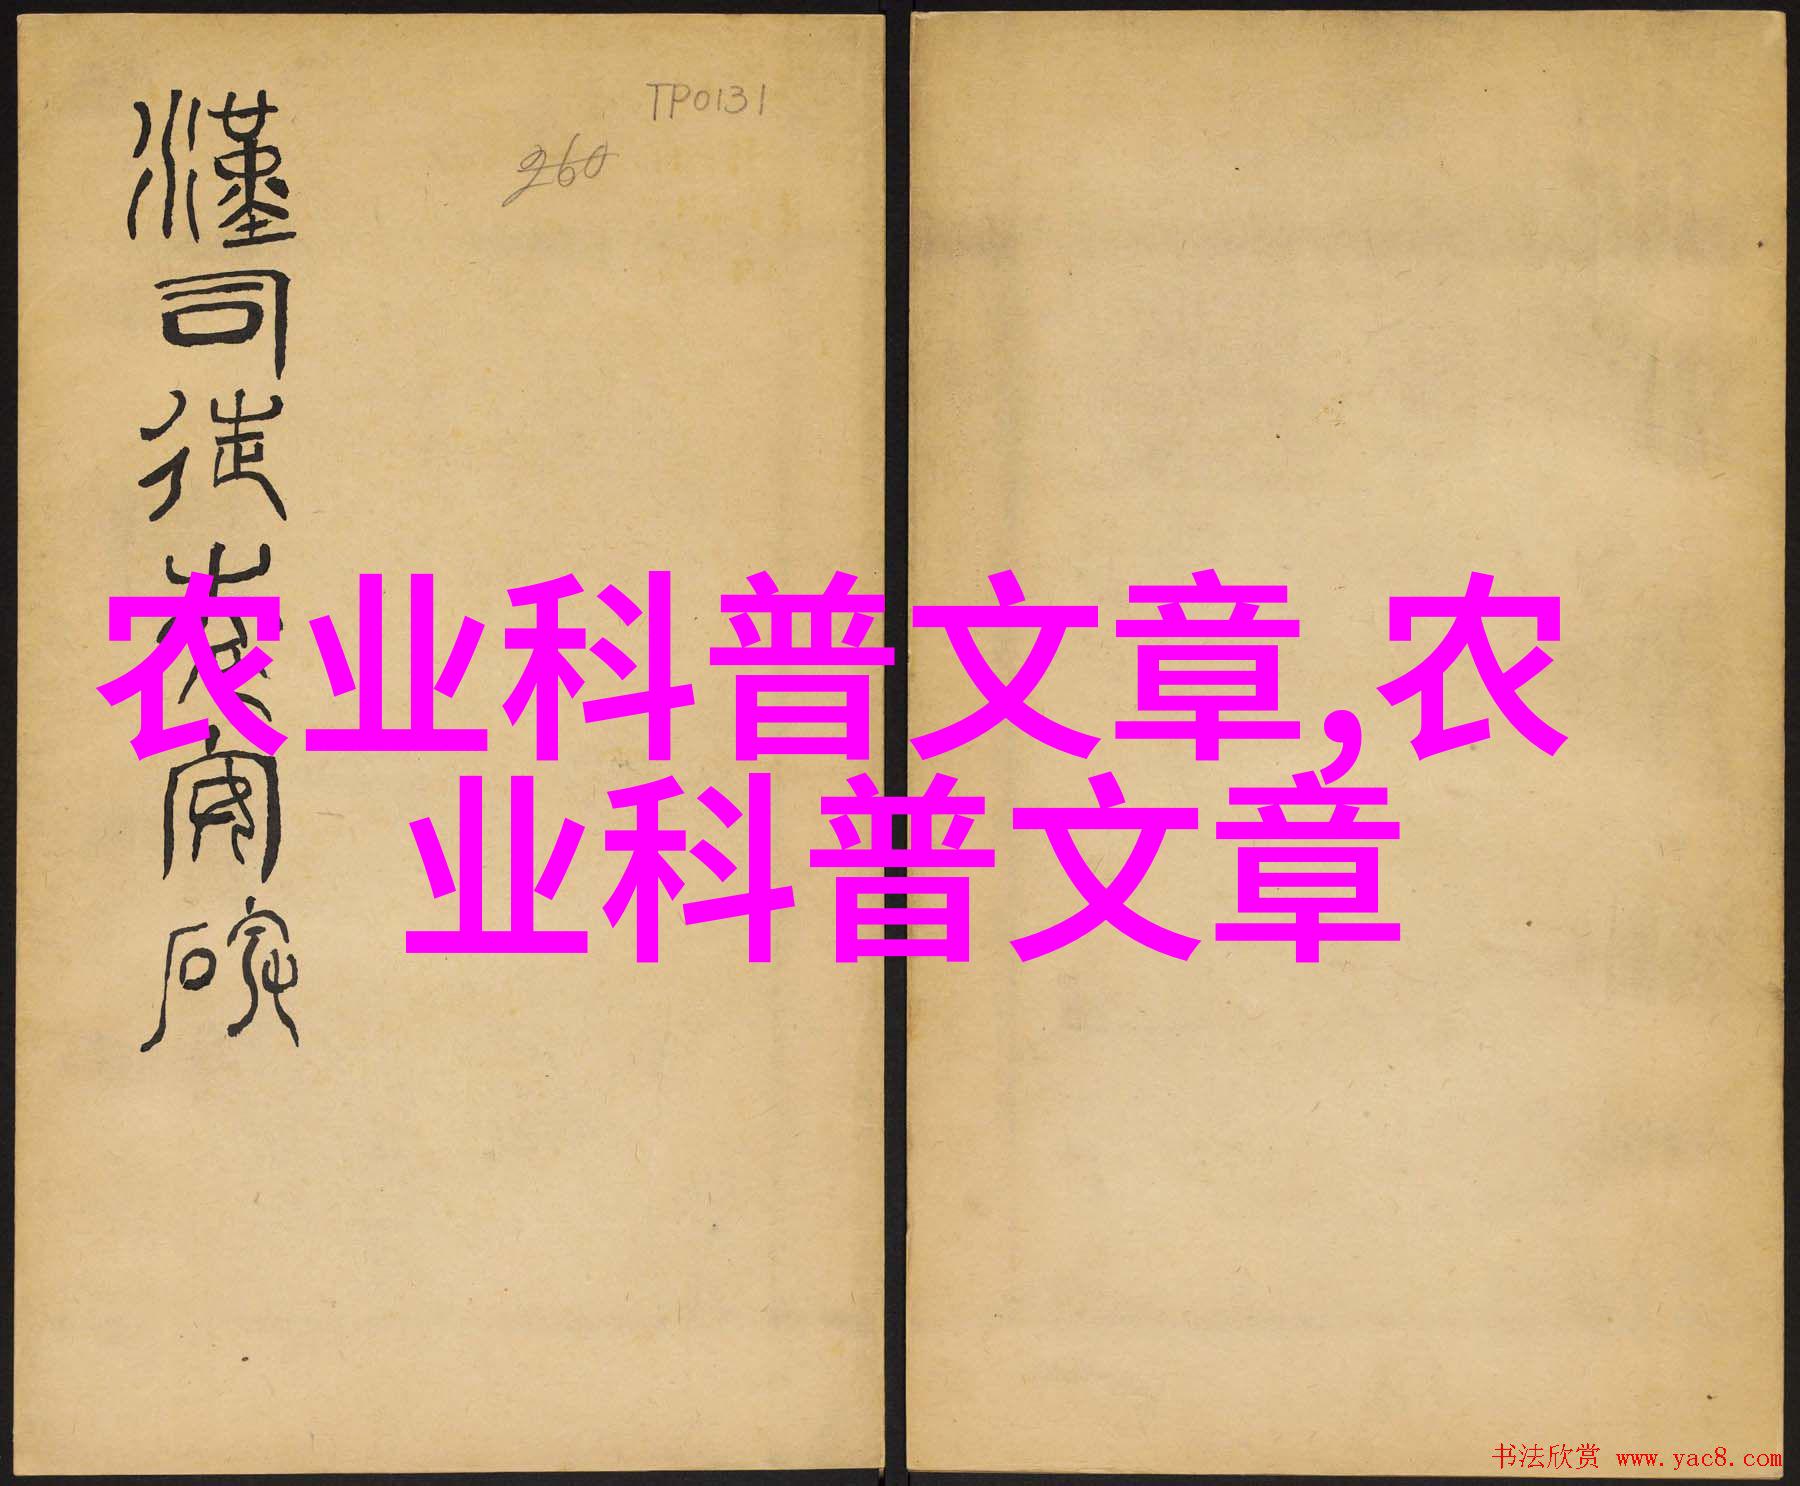 漢司徒袁安碑
TP0131
260
农业科普文章,农
业科普文章
书法欣赏 www.yac8.com